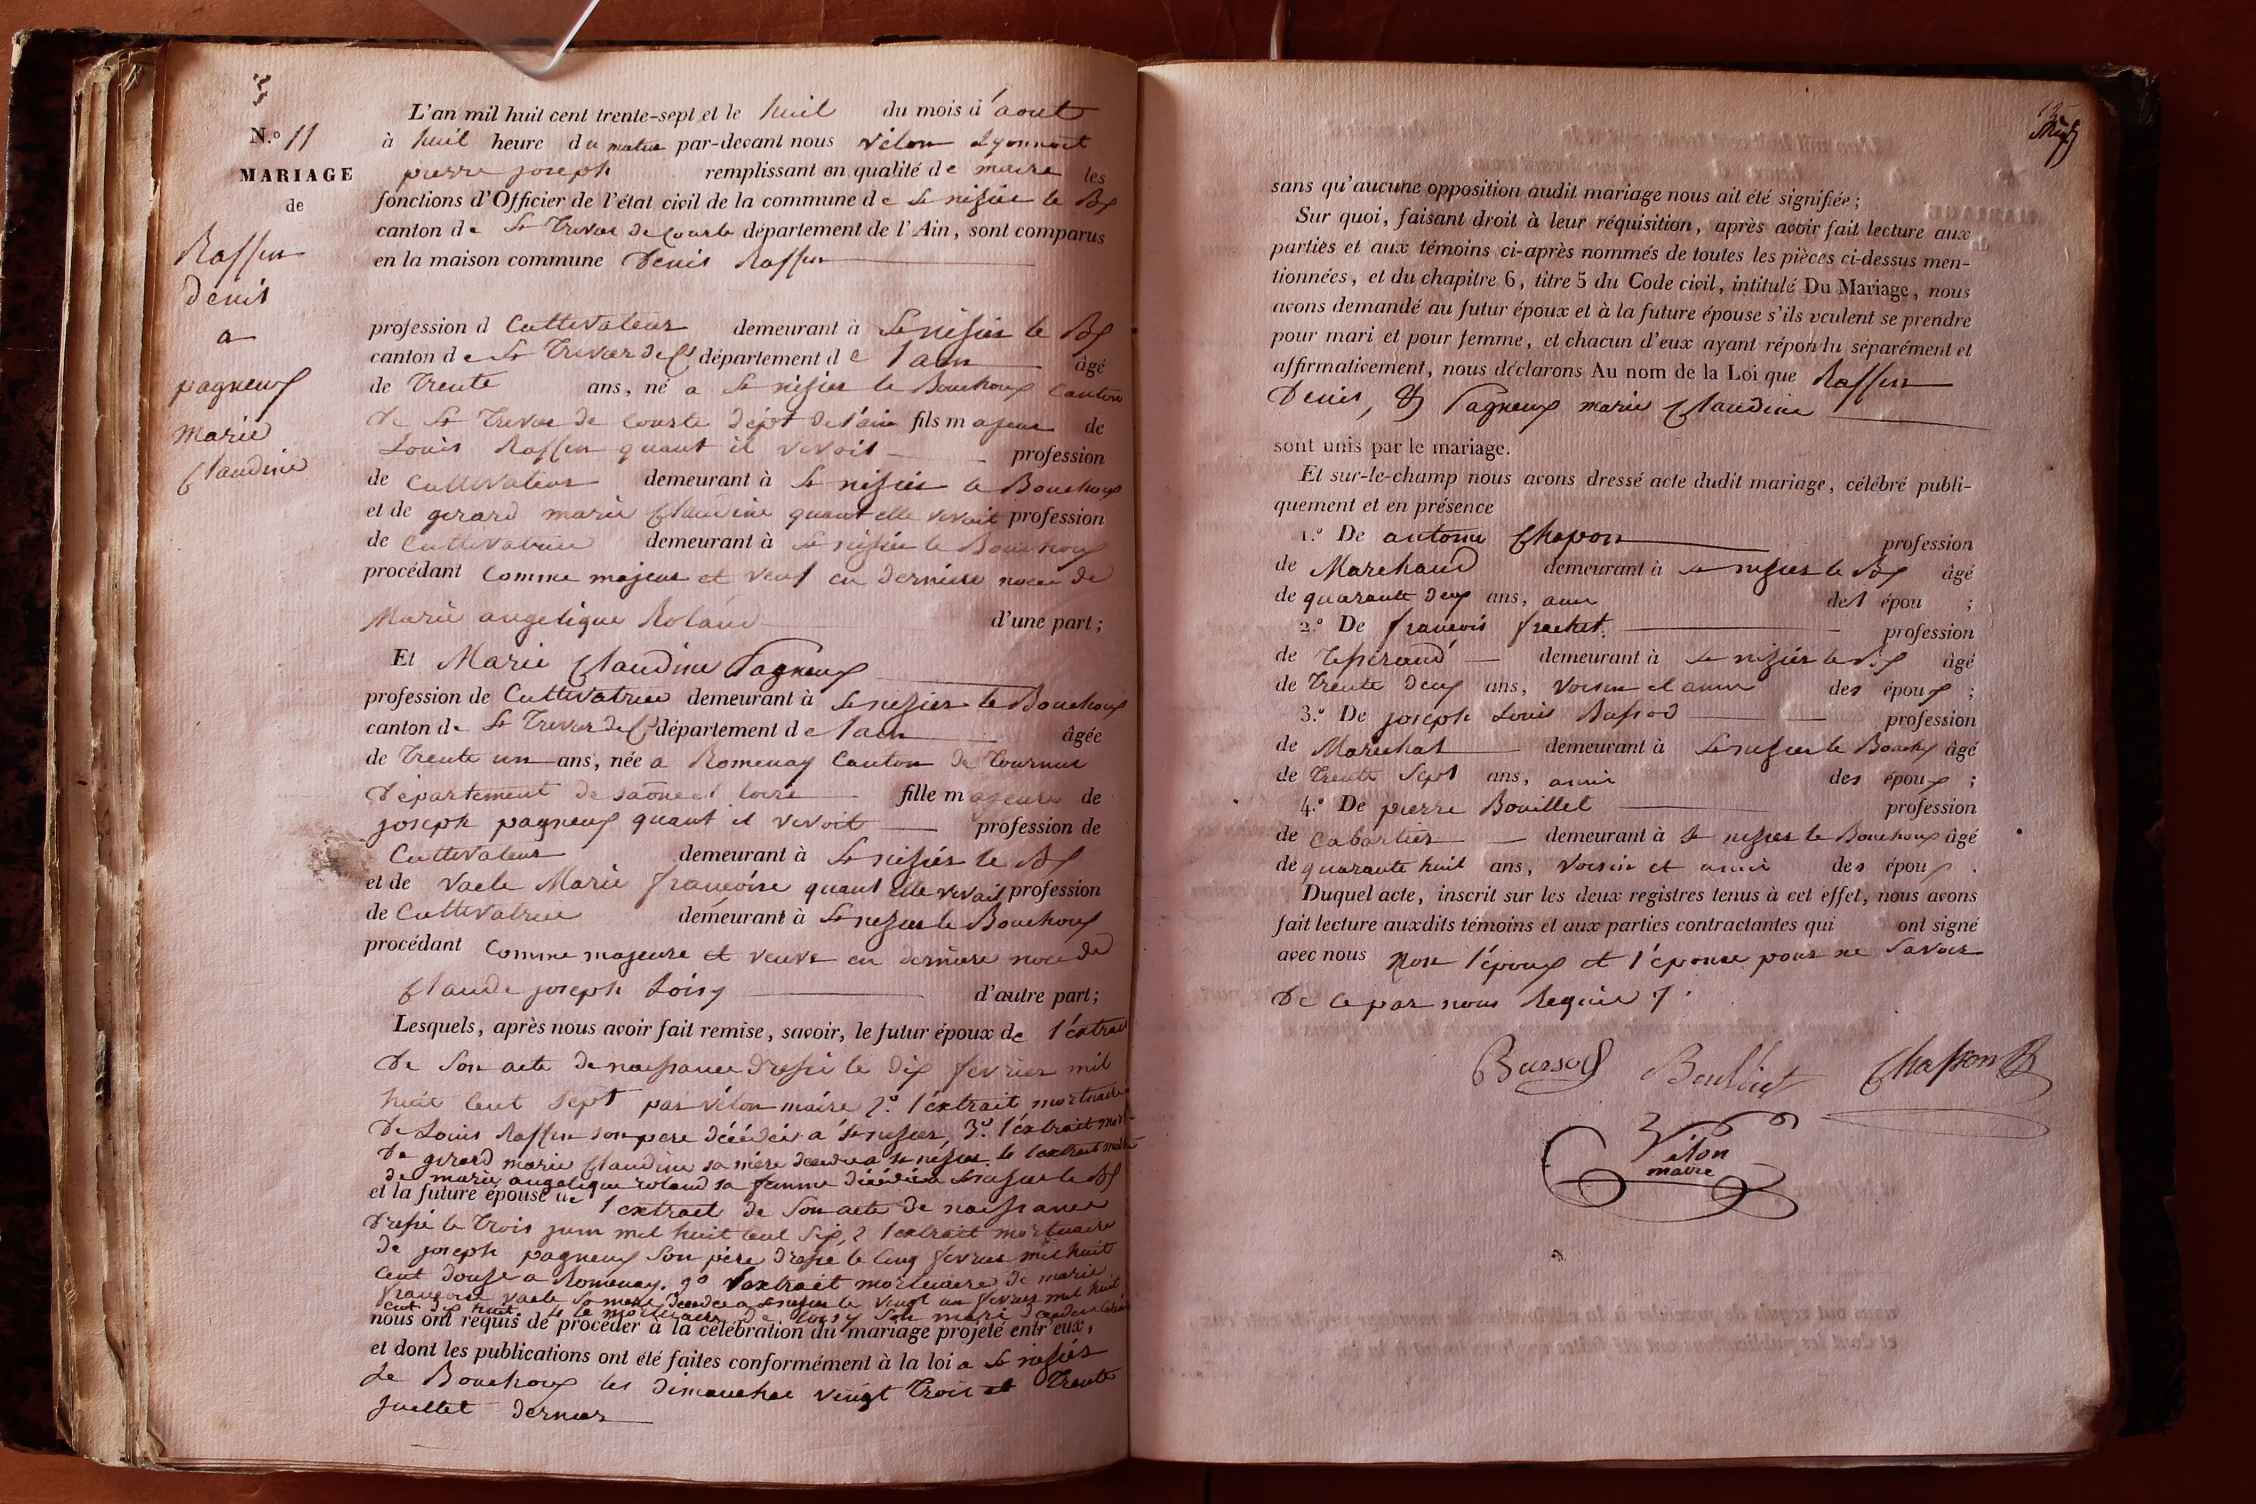 N.º 11
MARIAGE
de
Raffin
Denis
a
pagneux
Marie
Claudine
L'an mil huit cent trente-sept et le huit du mois d'aout
à huit heure du matin par-devant nous vélon Lyonnait
pierre joseph remplissant en qualité de maire les
fonctions d'Officier de l'état civil de la commune de St nizier le Bx
canton de St Trivier de Courte département de l'Ain, sont comparus
en la maison commune Denis Raffin
profession d Cultivateur demeurant à St nizier le Bx
canton de St Trivier de Cte département de l'ain âgé
de Trente ans, né a St nizier le Bouchoux Canton
De St Trivier de Courte dépt de l'ain fils majeur de
Louis Raffin quant il vivoit profession
de Cultivateur demeurant à St nizier le Bouchoux
et de girard marie Claudine quant elle vivait profession
de Cultivatrice demeurant à St nizier le Bouchoux
procédant Comme majeur et veuf en derniere noce de
Marie angelique Roland d'une part;
Et Marie Claudine Pagneux
profession de Cultivatrice demeurant à St nizier le Bouchoux
canton de St Trivier de Cte département de l'ain âgée
de Trente un ans, née a Romenay Canton de Tournus
Département de saône et loire fille majeure de
joseph pagneux quant il vivoit profession de
Cultivateur demeurant à St nizier le Bx
et de vacle Marie françoise quant elle vivait profession
de Cultivatrice demeurant à St nizier le Bouchoux
procédant Comme majeure et veuve en derniere noce de
Claude joseph Loisy d'autre part;
Lesquels, après nous avoir fait remise, savoir, le futur époux de l'éxtrait
De Son acte de naissance dressé le dix fevrier mil
huit Cent Sept par vélon maire 2.º l'éxtrait mortuaire
De Louis Raffin son pere décédé a St nizier, 3.º l'éxtrait mort.
De girard marie Claudine sa mère décédée a St nizier 4 l'extrait
de marie angelique roland sa femme décédée a St nizier le Bx
et la future épouse de l'extrait de Son acte de naissance
Dressé le Trois juin mil huit Cent Six, 2 l'extrait mortuaire
de joseph pagneux Son père dressé le Cinq fevrier mil huit
Cent douze a Romenay. 3º l'extrait mortuaire de marie
françoise vacle Sa mere décédée a St nizier le vingt un fevrier mil huit
cent dix huit. 4 le mortuaire de loisy Son mari
nous ont requis de procéder à la célébration du mariage projeté entr'eux,
et dont les publications ont été faites conformément à la loi a St nizier
Le Bouchoux les dimanches vingt Trois et Trente
juillet dernier
sans qu'aucune opposition audit mariage nous ait été signifiée;
Sur quoi, faisant droit à leur réquisition, après avoir fait lecture aux
parties et aux témoins ci-après nommés de toutes les pièces ci-dessus men-
tionnées, et du chapitre 6, titre 5 du Code civil, intitulé Du Mariage, nous
avons demandé au futur époux et à la future épouse s'ils veulent se prendre
pour mari et pour femme, et chacun d'eux ayant répondu séparément et
affirmativement, nous déclarons Au nom de la Loi que Raffin
Denis, & Pagneux marie Claudine
sont unis par le mariage.
Et sur-le-champ nous avons dressé acte dudit mariage, célébré publi-
quement et en présence
1.º De antoine Chapon profession
de Marchand demeurant à St nizier le Bx âgé
de quarante deux ans, ami des épou ;
2.º De françois frachet. profession
de Tisserand demeurant à St nizier le Bx âgé
de Trente deux ans, voisin et ami des époux ;
3.º De joseph Louis Bussod profession
de Maréchal demeurant à St nizier le Boucho âgé
de Trente Sept ans, ami des époux ;
4.º De pierre Bouillet profession
de Cabartier demeurant à St nizier le Bouchoux âgé
de quarante huit ans, voisin et ami des époux .
Duquel acte, inscrit sur les deux registres tenus à cet effet, nous avons
fait lecture auxdits témoins et aux parties contractantes qui ont signé
avec nous Non l'époux et l'épouse pour ne Savoir
De ce par nous Requis ./.
Bussod Boulliet Chapon
Vélon
maire